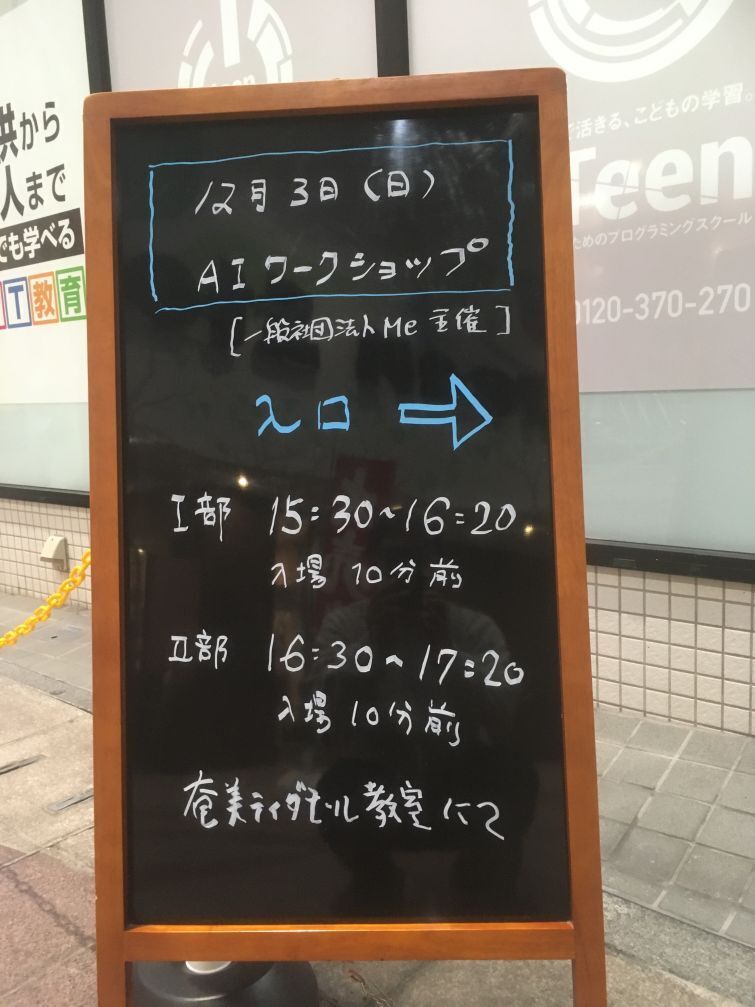 12月3日(日)
AIワークショップ
[一般社団法人Me主催]
入口 →
Ⅰ部 15:30~16:20
入場10分前
Ⅱ部 16:30~17:20
入場10分前
奄美ティダモール教室にて
供から
人まで
でも学べる
IT教育
で活きる、こどもの学習。
Teen
ためのプログラミングスクール
0120-370-270